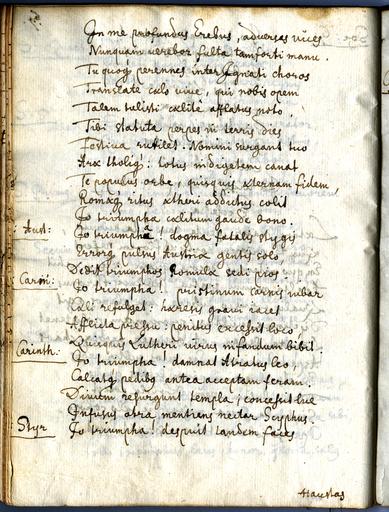 In me profundus Erebus, adversas vices
Nunquam verebor fulta tam forti manu.
Tu quoq; perennes inter Ignati choros
Translate cælo vive, qui nobis opem
Talem tulisti cælite afflatus noto.
Tibi statuta perpes in terris dies
Festiva rutilet. Nomini surgant tuo
Aræ tholiq; : totus indigetem canat
Te populus orbe, quisquis æternam fidem,
Romæq; ritus ætheri addictus colit
Io triumpha cælitum gaude bono.
Aust: Io triumpha! dogma fatalis stygis
Errorq; pulsus Austriæ gentis solo
Dedit triumphos Romulæ sedi pios
Carni: Io triumpha! pristinum Carnis iubar
Cæli refulget: hæresis gravi iacet
Afflicta pressu: penitus excessit loco
Quisquis Lutheri virus infandum bibit.
Carinth: Io triumpha! damnat Atriatus Leo
Calcatq; pedibq antea acceptam feram.
Divûm resurgunt templa; concessit lue
Infusus atra mentiens nectar Scyphus.
Styr Io triumpha! despuit tandem faces
Haustas